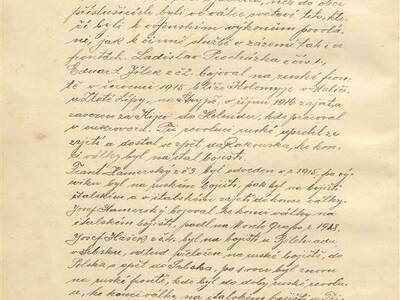 příslušících byli ve válce světové tito, kte-
ří byli k vojenským výkonům povolá-
ni, jak k činné službě v zázemí tak i v
frontách. Ladislav Procházka z čís 1,
Eduard Jílek z č2. bojoval na ruské fron-
tě v červnu 1915 blíže Kolomyje v Haliči
u Zloté Lípy, u Strypě, v říjnu 1916 zajat a
zavezen za Kijev do Helendu, kde pracoval
v cukrovaru. Při revoluci ruské uprchl ze
zajetí a dostal se zpět do Rakouska, ke kon-
ci války byl na ital. bojišti.
Frant. Hamerský z č3 byl odveden v r. 1915, po vý-
cviku byl na ruském bojišti, pak byl na bojišti
italském a v italském zajetí do konce války.
Josef Hamerský bojoval ke konci války na
italském bojišti, padl na Monte Grapo r. 1918.
Josef Hašek z č4. byl na bojišti u Bělehradu
v Srbsku, odtud přeložen na ruské bojiště, do
Polska a zpět do Srbska, po 1 roce byl znovu
na ruské frontě, kde byl do doby ruské revolu-
ce, ke konci války na italském bojišti. Při